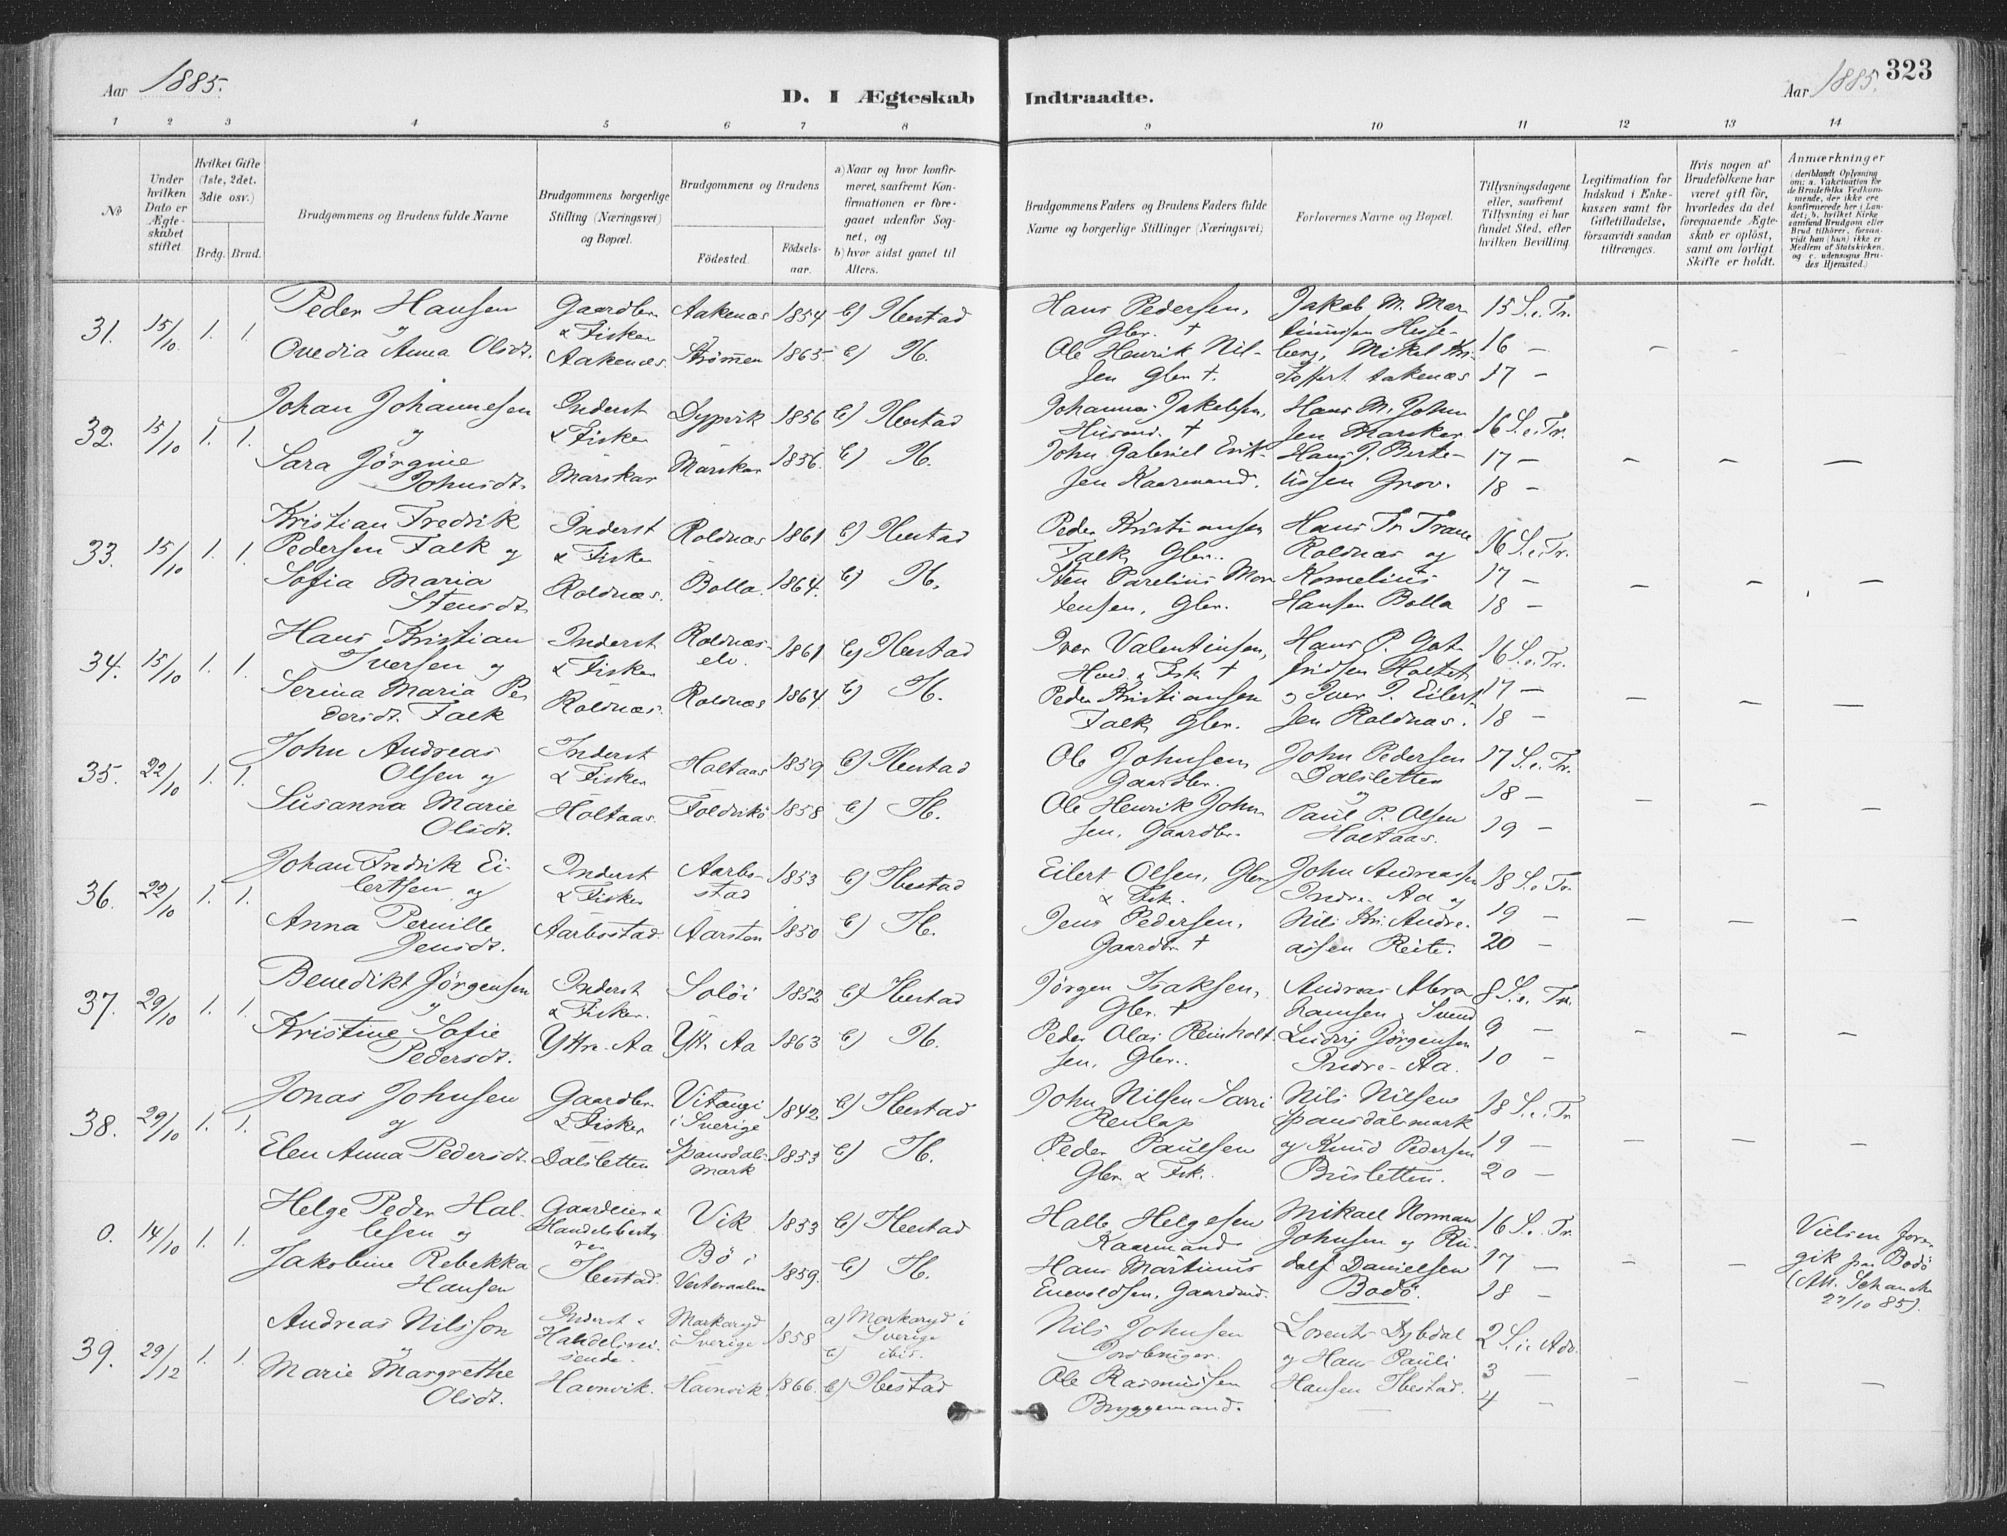 Aar 1885.
D. I Ægteskab Indtraadte.
Aar 1885. 323
1 2 3 4 5 6 7 8 9 10 11 12 13 14
No
Under hvilken Dato er Ægteskabet stiftet.
Hvilket Gifte (1ste, 2det, 3die osv.)
Brdg. Brud.
Brudgommens og Brudens fulde Navne
Brudgommens borgerlige Stilling (Næringsvei) og Bopæl.
Brudgommens og Brudens
Fødested. Fødselsaar.
a) Naar og hvor konfirmeret, saafremt Konfirmationen er foregaaet udenfor Sognet, og
b) hvor sidst gaaet til Alters.
Brudgommens Faders og Brudens Faders fulde Navne og borgerlige Stillinger (Næringsvei)
Forlovernes Navne og Bopæl.
Tillysningsdagene eller, saafremt Tillysning ei har fundet Sted, efter hvilken Bevilling
Legitimation for Indskud i Enkekassen samt for Giftetilladelse, forsaavidt saadan tiltrænges.
Hvis nogen af Brudefolkene har været gift før, hvorledes da det foregaaende Ægteskab er opløst, samt om lovligt Skifte er holdt.
Anmærkninger (deriblandt Oplysning om: a. Vakcination for de Brudefolks Vedkommende, der ikke ere konfirmerede her i Landet; b. hvilket Kirkesamfund Brudgom eller Brud tilhører, forsaavidt han (hun) ikke er Medlem af Statskirken, og c. udensogns Brudes Hjemsted.)
31. 15/10. 1. 1. Peder Hansen
y
Ovedia Anna Olsdt.
Gaardbr.
& Fisker
Aakenæs.
Aakenæs 1854 b) Ibestad
Strømmen 1865. b) Ib.
Hans Pedersen,
Gbr. †
Ole Henrik Nil-
sen Gbr †.
Jakob M. Mar-
tinussen Hesse-
berg, Mikal Kri-
stoffers. Aakenæs
15 S. e. Tr.
16 —
17 —
— — —
32. 15/10 1. 1. Johan Johannesen
y
Sara Jørgine
Johnsdt.
Inderst
& Fisker
Marskar
Dypvik 1856 b) Ibestad
Marskar 1856. b) Ib.
Johannes Jakobsen,
Husmd. †
John Gabriel Erik-
sen Kaarmand.
Hans M. John-
sen Marskar
Hans J. Berte-
ussen Grov.
16 S. e. Tr.
17 —
18 —
— — —
33. 15/10 1. 1. Kristian Fredrik
Pedersen Falk og
Sofia Maria
Stensdt.
Inderst
& Fisker
Roldnæs.
Roldnæs 1861 b) Ibestad
Bolla. 1864. b) Ib.
Peder Kristiansen
Falk, Gbr.
Sten Parelius Mor-
tensen, Gbr.
Hans Fr. Trane
Roldnæs og
Kornelius
Hansen Bolla
16 S. e. Tr.
17 —
18 —
— —
34. 15/10 1. 1. Hans Kristian
Iversen og
Serina Maria Pe-
dersdt. Falk
Inderst
& Fisker
Roldnæs.
Roldnæs-
elv. 1861 b) Ibestad
Roldnæs 1864 b) Ib.
Iver Valentinsen,
Husmd. & Fisk †
Peder Kristiansen
Falk, Gbr.
Hans P. Got-
fridsen Holtet
og Iver P. Eilert-
sen Roldnæs.
16 S. e. Tr.
17 —
18 —
— — —
35. 22/10 1. 1. John Andreas
Olsen og
Susanna Marie
Olsdt.
Inderst
& Fisker
Holtaas.
Holtaas 1859 b) Ibestad
Foldvik 1858 b) Ib.
Ole Johnsen
Gaardbr.
Ole Henrik John-
sen, Gaardbr.
John Pedersen
Dalsletten
og
Paul P. Olsen
Holtaas.
17 S. e. Tr.
18 —
19 —
— — —
36. 22/10 1. 1. Johan Fredrik Ei-
lertsen og
Anna Pernille
Jensdt.
Inderst
& Fisker
Aarbostad.
Aarbo-
stad 1853 b) Ibestad
Aarsten 1850 b) Ib.
Eilert Olsen, Gbr.
& Fsk.
Jens Pedersen,
Gaardbr †
John Andreassen
Indre-Aa og
Nils Kr. Andre-
assen Reite.
18 S. e. Tr
19 —
20 —
— — —
37. 29/10 1. 1. Benedikt Jørgensen
y
Kristine Sofie
Pedersdt.
Inderst
& Fisker.
Yttr.-Aa
Soløi 1852 b) Ibestad
Ytt. Aa 1863 b) Ib.
Jørgen Isaksen,
Gbr. †
Peder Olai Reinholt-
sen, Gbr.
Andreas Abra-
hamsen, Svend
Ludvig Jørgensen
Indre-Aa.
8 S. e. Tr.
9 —
10 —
— — —
38. 29/10 1. 1. Jonas Johnsen
og
Elen Anna Pedersdt.
Gaardbr.
& Fisker
Dalsletten
Vitangi
i Sverige 1842 b) Ibestad
Spansdals-
mark 1853 b) Ib.
John Nilsen Sarri
Renlap
Peder Paulsen
Gbr & Fsk.
Nils Nilsen
Spansdalsmark
og Knud Pedersen
Brusletten.
18 S. e. Tr
19 —
20 —
— — —
0. 14/10 1. 1. Helge Peder Hal-
lesen og
Jakobine Rebekka
Hansen
Gaardeier &
Handelsbesty-
rer
Ibestad.
Vik 1853 b) Ibestad
Bø i
Vesteraalen 1859. b) Ib.
Halle Helgesen
Kaarmand
Hans Martinus
Enevoldsen, Gaardmd.
Mikael Norman
Johnsen og Ru-
dolf Danielsen
Bodø.
16 S. e. Tr.
17 —
18 —
— —
Vielsen fore-
gik paa Bodø
(Att. Schancke
27/10 85).
39. 29/12 1. 1. Andreas Nilsson
y
Marie Margrethe
Olsdt.
Inderst &
Handelsrei-
sende.
Havnvik.
Markaryd
i Sverige 1858
Havnvik 1866.
a) Markaryd i
Sverige
b) ibid.
b) Ibestad
Nils Johnsen
Jordbruger.
Ole Rasmussen
Bryggemand.
Lorents Dybdal
og Hans Pauli
Hansen Ibestad.
—
2 S. i Adv.
3 —
4 —
— — —